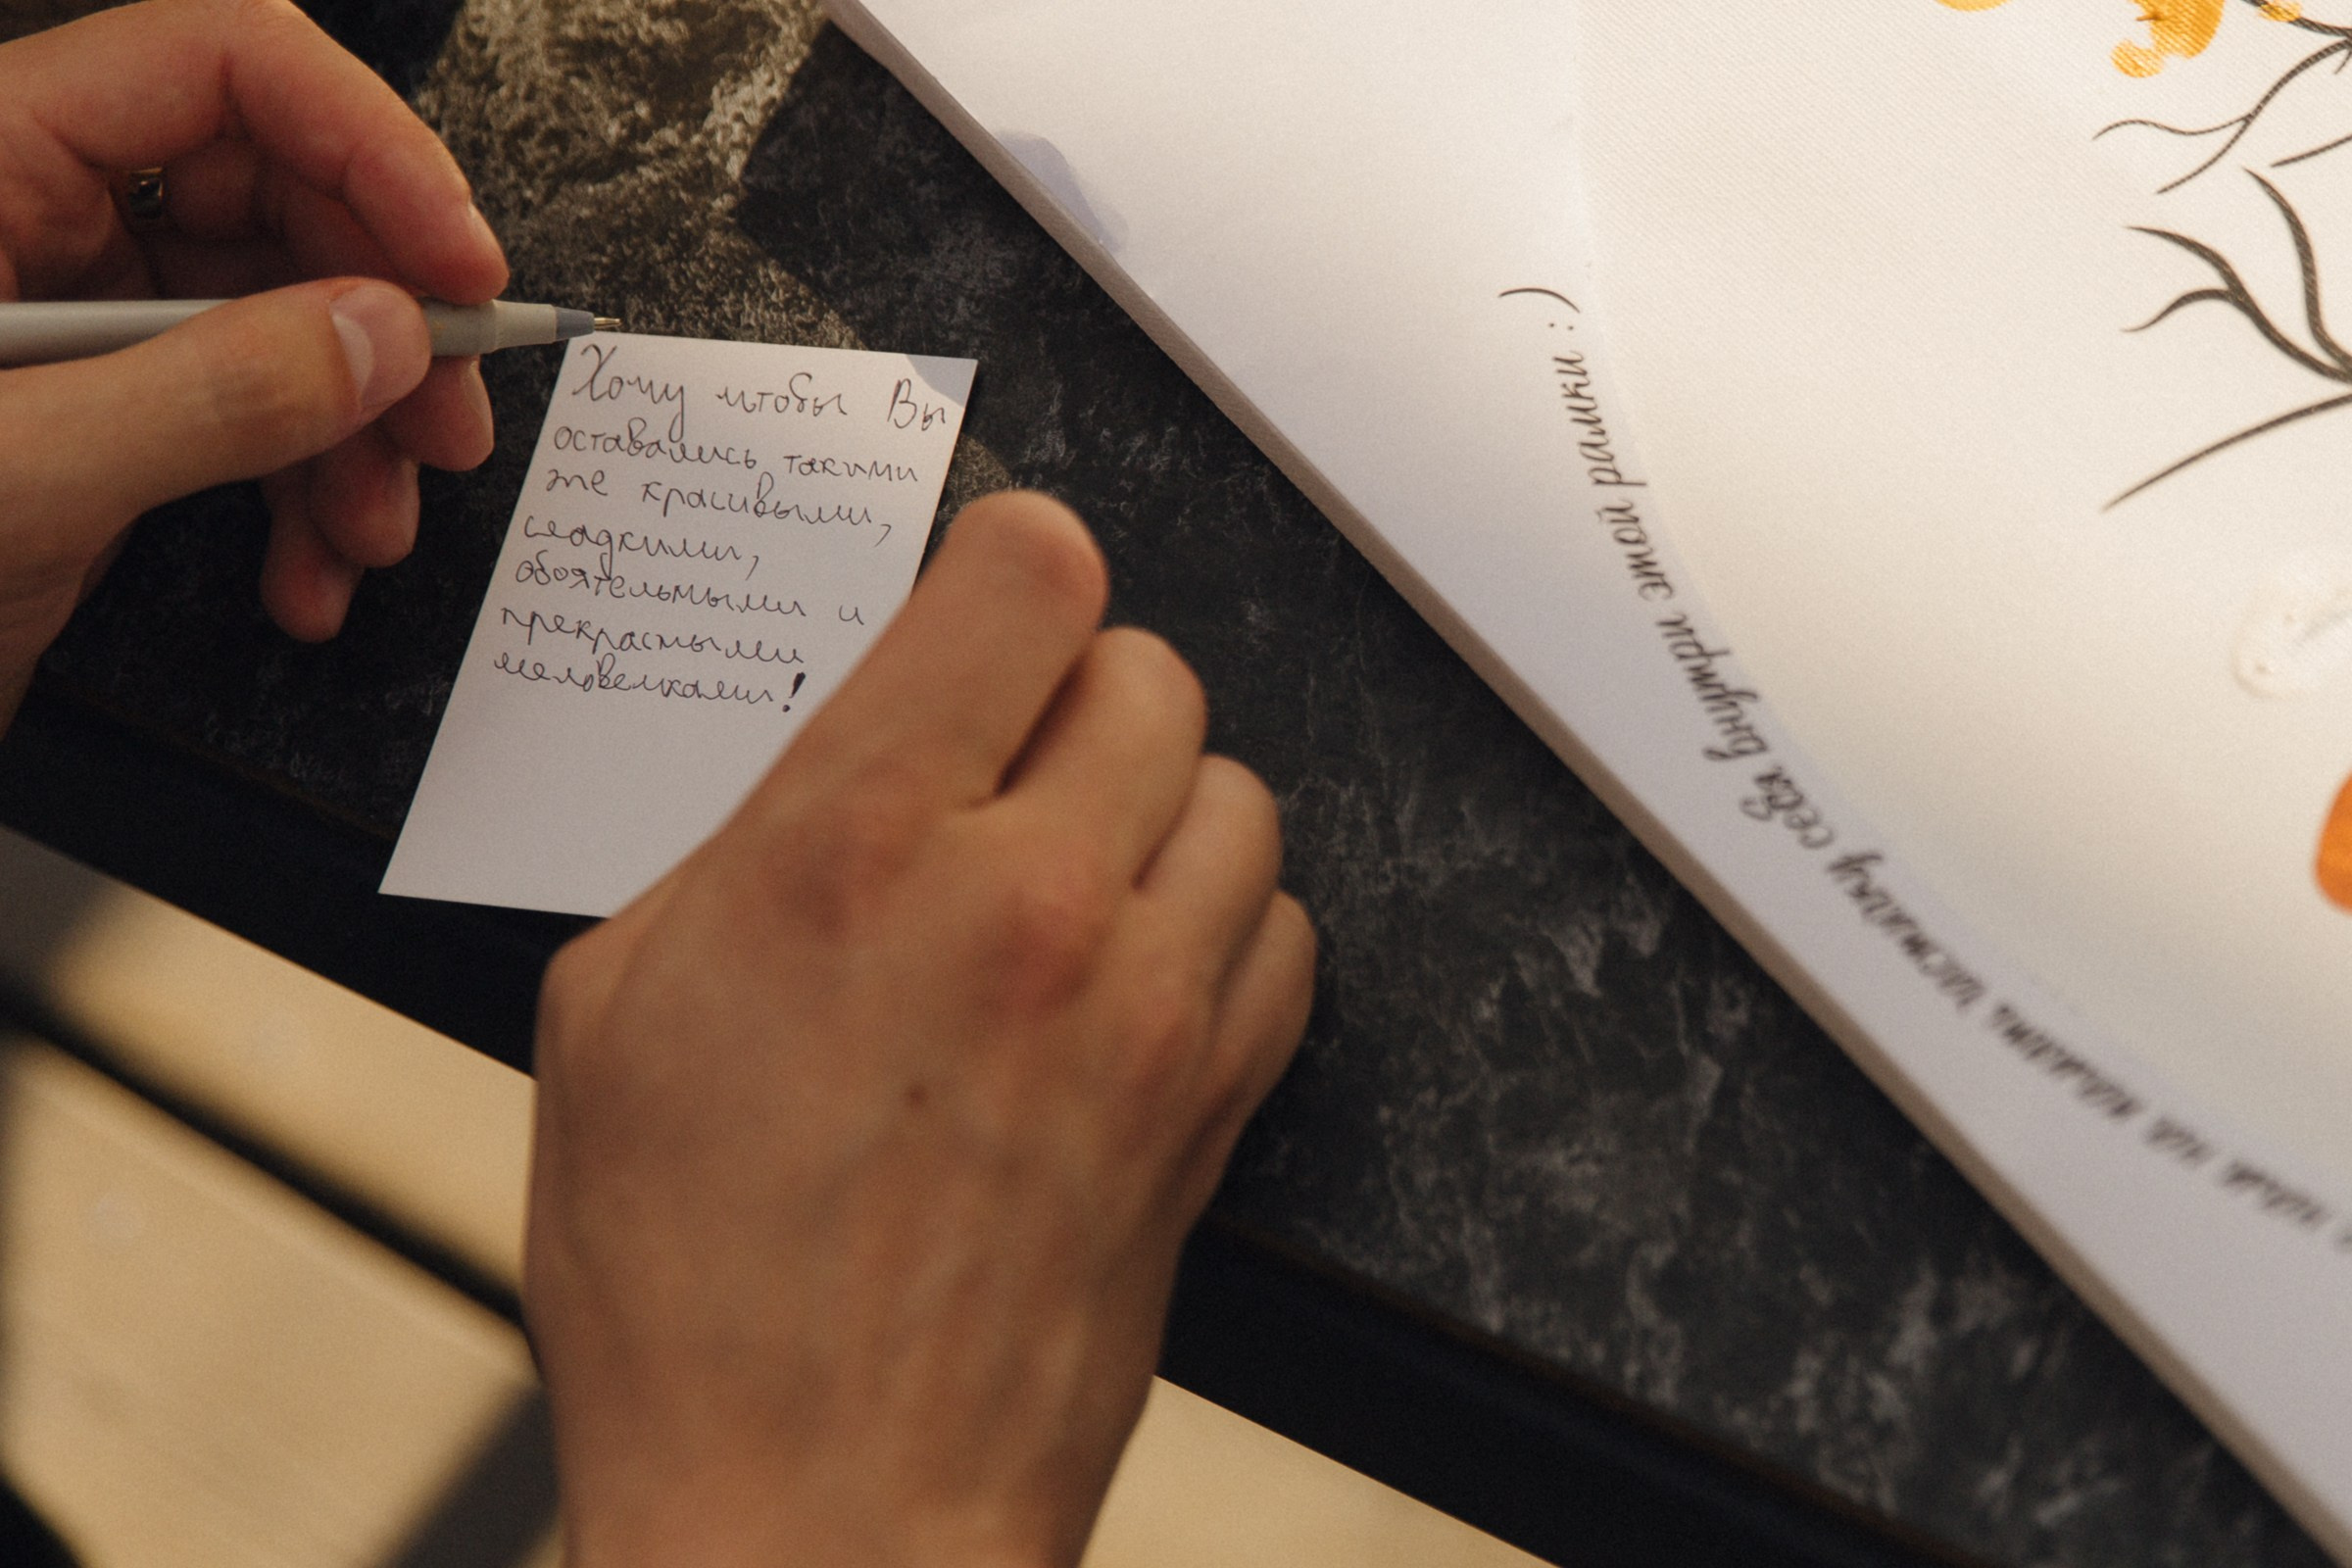 Хочу чтобы Вы
оставались такими
же красивыми,
сладкими,
обоятельными и
прекрасными
человечками!
частичку себя внутри этой рамки :)